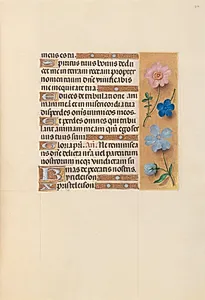 meus es tu.
Spiritus tuus bonus dedu
cet me in terram rectam propter
nomen tuum domine vivificabis
me in equitate tua
Educes de tribulatione ani
mam meam et in misericordia tua
disperdes omnes inimicos meos
Et perdes omnes qui tribu
lant animam meam qm ego ser
vus tuus sum
Gloria pri. An. Ne reminiscaris
domine delicta vel parentum
nostrorum neque vindictam su
mas de peccatis nostris.
Kyrieleison
Xpisteleison